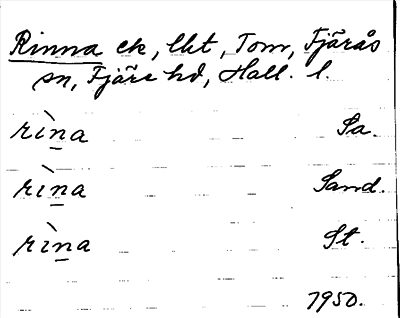 Rinna ek, lht, Tom, Fjärås
sn, Fjäre hd, Hall. l.
rìna Sa.
rìna Sand.
rìna St.
1950.